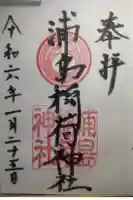 奉拝
浦島稲荷神社
令和六年一月二十五日
浦島
神社